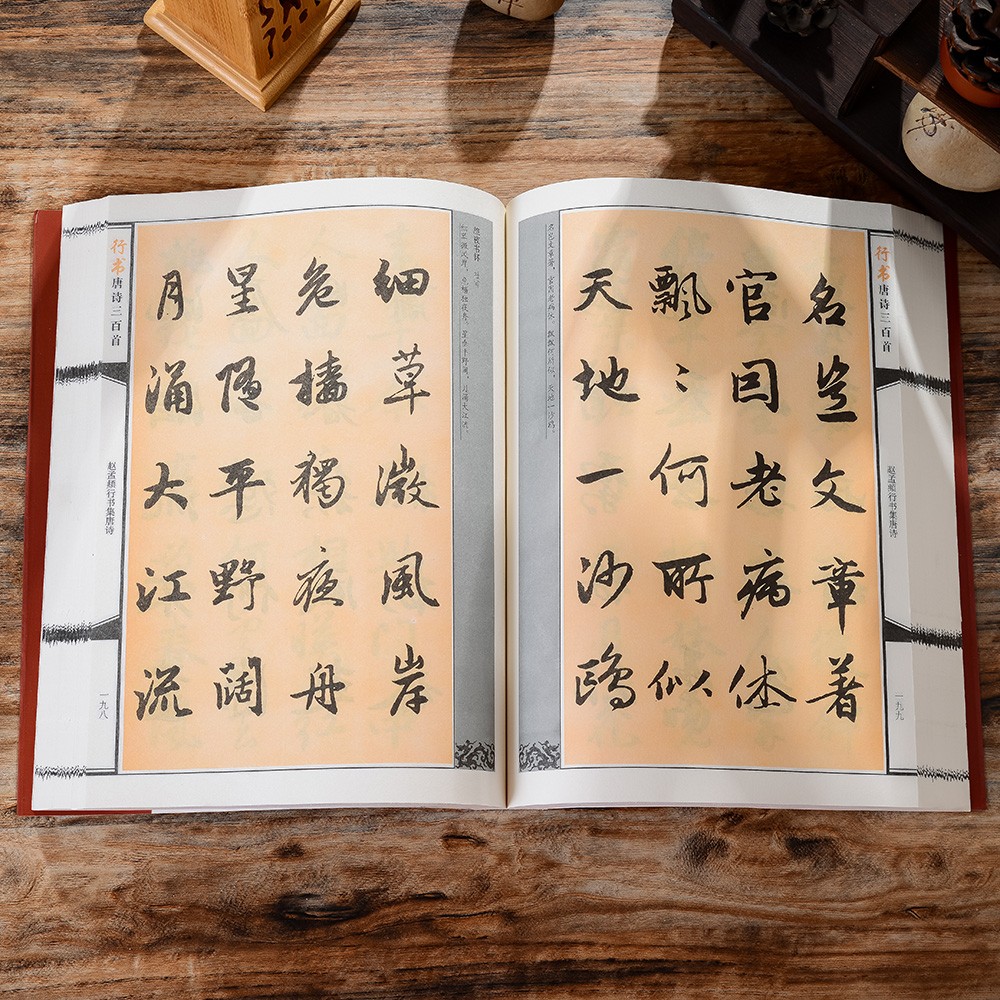 行书唐诗三百首
赵孟頫行书集唐诗
一九八
旅夜书怀 杜甫
细草微风岸，危樯独夜舟。星垂平野阔，月涌大江流。
細草微風岸
危檣獨夜舟
星隨平野闊
月涌大江流
行书唐诗三百首
赵孟頫行书集唐诗
一九九
名岂文章著，官因老病休。飘飘何所似，天地一沙鸥。
名豈文章著
官因老病休
飄〻何所似
天地一沙鷗